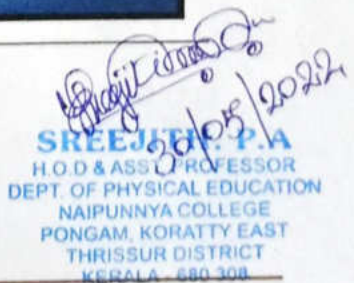 30/05/2022
SREEJITH. P.A
H.O.D & ASST. PROFESSOR
DEPT. OF PHYSICAL EDUCATION
NAIPUNNYA COLLEGE
PONGAM, KORATTY EAST
THRISSUR DISTRICT
KERALA - 680 308